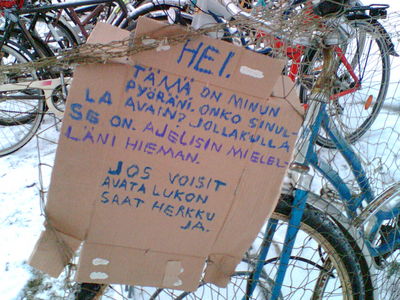 HEI.
TÄMÄ ON MINUN
PYÖRÄNI. ONKO SINUL-
LA AVAIN? JOLLAKULLA
SE ON. AJELISIN MIELEL-
LÄNI HIEMAN.
JOS VOISIT
AVATA LUKON
SAAT HERKKU
JA.